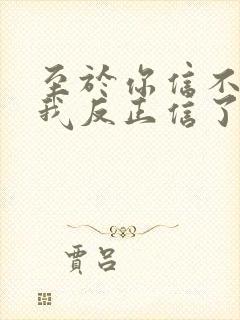 至於你信不
我反正信了
賈呂